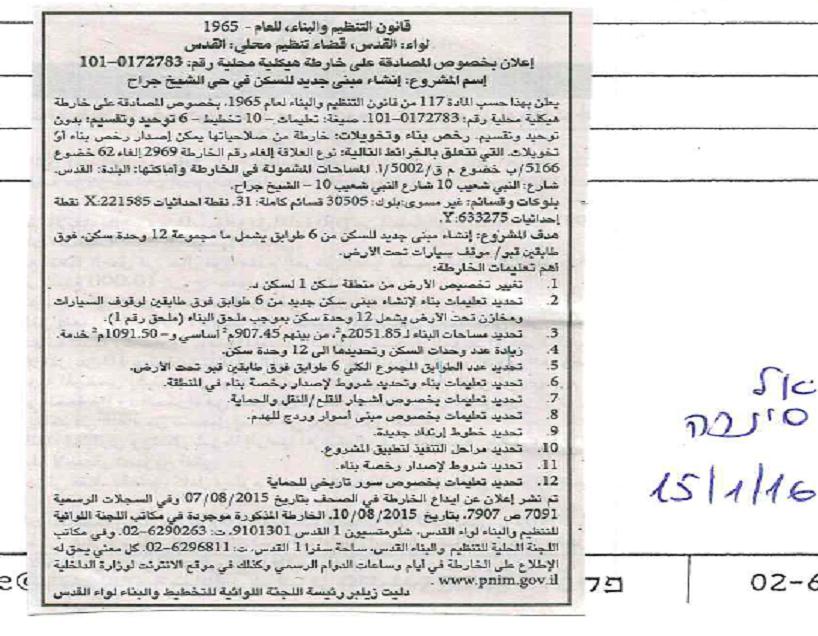 قانون التنظيم والبناء، للعام - 1965
لواء: القدس، قضاء تنظيم محلي: القدس
إعلان بخصوص المصادقة على خارطة هيكلية محلية رقم: 0172783–101
إسم المشروع: إنشاء مبنى جديد للسكن في حي الشيخ جراح
يعلن بهذا حسب المادة 117 من قانون التنظيم والبناء لعام 1965، بخصوص المصادقة على خارطة
هيكلية محلية رقم: 0172783–101. صيغة: تعليمات – 10 تخطيط – 6 توحيد وتقسيم: بدون
توحيد وتقسيم. رخص بناء وتخويلات: خارطة من صلاحياتها يمكن إصدار رخص بناء أو
تخويلات. التي تتعلق بالخرائط التالية: نوع العلاقة إلغاء رقم الخارطة 2969 إلغاء 62 خضوع
5166/ب خضوع م ق/5002/أ. المساحات المشمولة في الخارطة وأماكنها: البلدة: القدس.
شارع: النبي شعيب 10 شارع النبي شعيب 10 – الشيخ جراح.
بلوكات وقسائم: غير مسوى:بلوك: 30505 قسائم كاملة: 31. نقطة احداثيات X:221585 نقطة
إحداثيات Y:633275.
هدف المشروع: إنشاء مبنى جديد للسكن من 6 طوابق يشمل ما مجموعة 12 وحدة سكن، فوق
طابقين قبو/ موقف سيارات تحت الأرض.
أهم تعليمات الخارطة:
1. تغيير تخصيص الأرض من منطقة سكن 1 لسكن د.
2. تحديد تعليمات بناء لإنشاء مبنى سكن جديد من 6 طوابق فوق طابقين لوقوف السيارات
ومخازن تحت الأرض يشمل 12 وحدة سكن بموجب ملحق البناء (ملحق رقم 1).
3. تحديد مساحات البناء لـ 2051.85م²، من بينهم 907.45م² أساسي و– 1091.50م² خدمة.
4. زيادة عدد وحدات السكن وتحديدها الى 12 وحدة سكن.
5. تحديد عدد الطوابق المجموع الكلي 6 طوابق فوق طابقين قبو تحت الأرض.
6. تحديد تعليمات بناء وتحديد شروط لإصدار رخصة بناء في المنطقة.
7. تحديد تعليمات بخصوص أشجار للقلع/النقل والحماية.
8. تحديد تعليمات بخصوص مبنى أسوار وردج للهدم.
9. تحديد خطوط إرتداد جديدة.
10. تحديد مراحل التنفيذ لتطبيق المشروع.
11. تحديد شروط لإصدار رخصة بناء.
12. تحديد تعليمات بخصوص سور تاريخي للحماية
تم نشر إعلان عن ايداع الخارطة في الصحف بتاريخ 07/08/2015 وفي السجلات الرسمية
7091 ص 7907، بتاريخ 10/08/2015. الخارطة المذكورة موجودة في مكاتب اللجنة اللوائية
للتنظيم والبناء لواء القدس، شلومتسيون 1 القدس 9101301، ت: 6290263–02. وفي مكاتب
اللجنة المحلية للتنظيم والبناء القدس، ساحة سفرا 1 القدس، ت: 6296811–02. كل معني يحق له
الإطلاع على الخارطة في أيام وساعات الدوام الرسمي وكذلك في موقع الانترنت لوزارة الداخلية
www.pnim.gov.il .
دليت زيلبر رئيسة اللجنة اللوائية للتخطيط والبناء لواء القدس
15/1/16
02-6